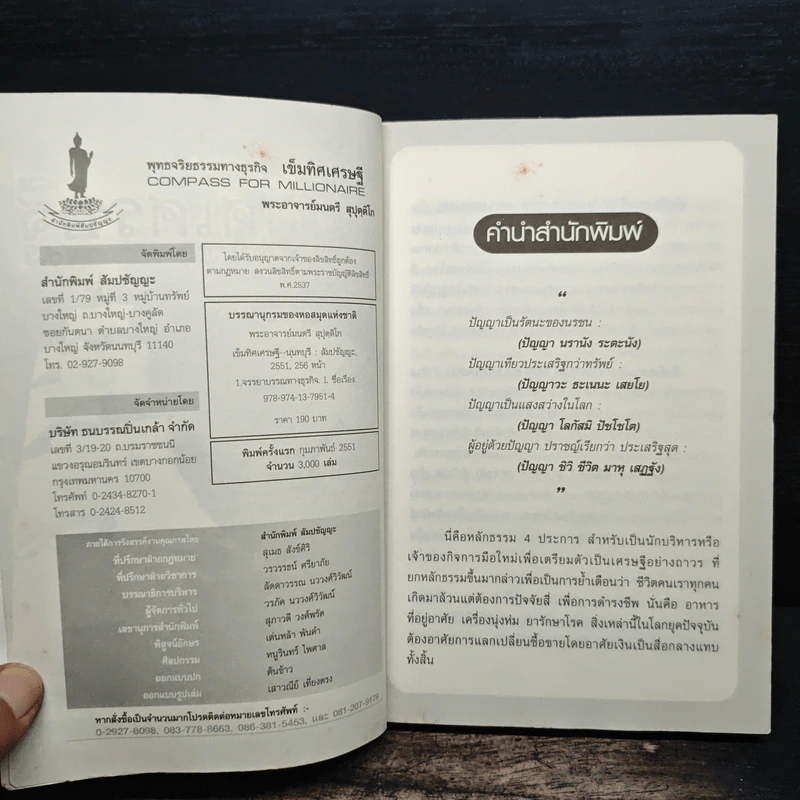 พุทธจริยธรรมทางธุรกิจ เข็มทิศเศรษฐี
COMPASS FOR MILLIONAIRE
พระอาจารย์มนตรี สุปุตฺติโก
สำนักพิมพ์สัมปชัญญะ
จัดพิมพ์โดย
สำนักพิมพ์ สัมปชัญญะ
เลขที่ 1/79 หมู่ที่ 3 หมู่บ้านทรัพย์
บางใหญ่ ถ.บางใหญ่-บางคูลัด
ซอยกันตนา ตำบลบางใหญ่ อำเภอ
บางใหญ่ จังหวัดนนทบุรี 11140
โทร. 02-927-9098
จัดจำหน่ายโดย
บริษัท ธนบรรณปิ่นเกล้า จำกัด
เลขที่ 3/19-20 ถ.บรมราชชนนี
แขวงอรุณอมรินทร์ เขตบางกอกน้อย
กรุงเทพมหานคร 10700
โทรศัพท์ 0-2434-8270-1
โทรสาร 0-2424-8512
โดยได้รับอนุญาตจากเจ้าของลิขสิทธิ์ถูกต้อง
ตามกฎหมาย สงวนลิขสิทธิ์ตามพระราชบัญญัติลิขสิทธิ์
พ.ศ.2537
บรรณานุกรมของหอสมุดแห่งชาติ
พระอาจารย์มนตรี สุปุตฺติโก
เข็มทิศเศรษฐี--นนทบุรี : สัมปชัญญะ,
2551, 256 หน้า
1.จรรยาบรรณทางธุรกิจ. I. ชื่อเรื่อง.
978-974-13-7951-4
ราคา 190 บาท
พิมพ์ครั้งแรก กุมภาพันธ์ 2551
จำนวน 3,000 เล่ม
ภายใต้การรังสรรค์งานคุณภาพโดย สำนักพิมพ์ สัมปชัญญะ
ที่ปรึกษาฝ่ายกฎหมาย สุเมธ สังข์ศิริ
ที่ปรึกษาฝ่ายวิชาการ วรวรรธน์ ศรียาภัย
บรรณาธิการบริหาร ลัดดาวรรณ นววงศ์วิวัฒน์
ผู้จัดการทั่วไป วรภัค นววงศ์วิวัฒน์
เลขานุการสำนักพิมพ์ สุภาวดี วงศ์พรัด
พิสูจน์อักษร เด่นหล้า พันดำ
ศิลปกรรม หนูรินทร์ ไพศาล
ออกแบบปก ต้นข้าว
ออกแบบรูปเล่ม เสาวณีย์ เที่ยงตรง
หากสั่งซื้อเป็นจำนวนมากโปรดติดต่อหมายเลขโทรศัพท์ :-
0-2927-8098, 083-778-8663, 086-381-5453, และ 081-207-9179
คำนำสำนักพิมพ์
“
ปัญญาเป็นรัตนะของนรชน :
(ปัญญา นรานัง ระตะนัง)
ปัญญาเทียวประเสริฐกว่าทรัพย์ :
(ปัญญาวะ ธะเนนะ เสยโย)
ปัญญาเป็นแสงสว่างในโลก :
(ปัญญา โลกัสมิ ปัชโชโต)
ผู้อยู่ด้วยปัญญา ปราชญ์เรียกว่า ประเสริฐสุด :
(ปัญญา ชีวิ ชีวิต มาหุ เสฏฐัง)
”
นี่คือหลักธรรม 4 ประการ สำหรับเป็นนักบริหารหรือ
เจ้าของกิจการมือใหม่เพื่อเตรียมตัวเป็นเศรษฐีอย่างถาวร ที่
ยกหลักธรรมขึ้นมากล่าวเพื่อเป็นการย้ำเตือนว่า ชีวิตคนเราทุกคน
เกิดมาล้วนแต่ต้องการปัจจัยสี่ เพื่อการดำรงชีพ นั่นคือ อาหาร
ที่อยู่อาศัย เครื่องนุ่งห่ม ยารักษาโรค สิ่งเหล่านี้ในโลกยุคปัจจุบัน
ต้องอาศัยการแลกเปลี่ยนซื้อขายโดยอาศัยเงินเป็นสื่อกลางแทบ
ทั้งสิ้น